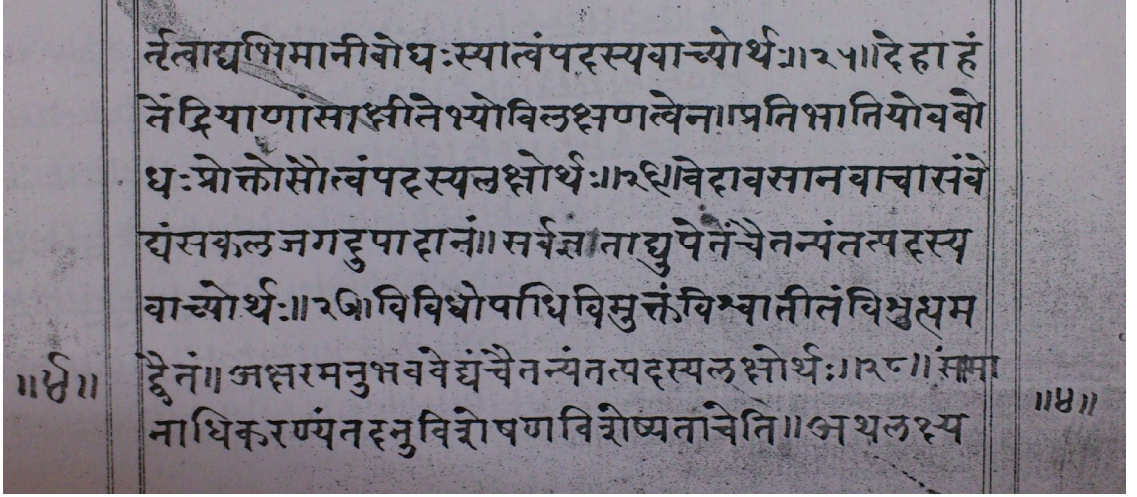 र्तृत्वाद्यभिमानीबोधःस्यात्वंपदस्यवाच्योर्थः॥२५॥देहाहं
तेंद्रियाणांसाक्षीतेभ्योविलक्षणत्वेन॥प्रतिभातियोवबो
धःप्रोक्तोसौत्वंपदस्यलक्षोर्थः॥२६॥वेदावसानवाचासंवे
द्यंसकलजगदुपादानं॥सर्वज्ञाताद्युपेतंचैतन्यंतत्पदस्य
वाच्योर्थः॥२७॥विविधोपाधिविमुक्तंविश्वातीतंविशुत्धम
द्वैतं॥अक्षरमनुभववेद्यंचैतन्यंतत्पदस्यलक्षोर्थः॥२८॥सामा
नाधिकरण्यंतदनुविशेषणविशेष्यताचेति॥अथलक्ष्य
॥४॥
॥४॥